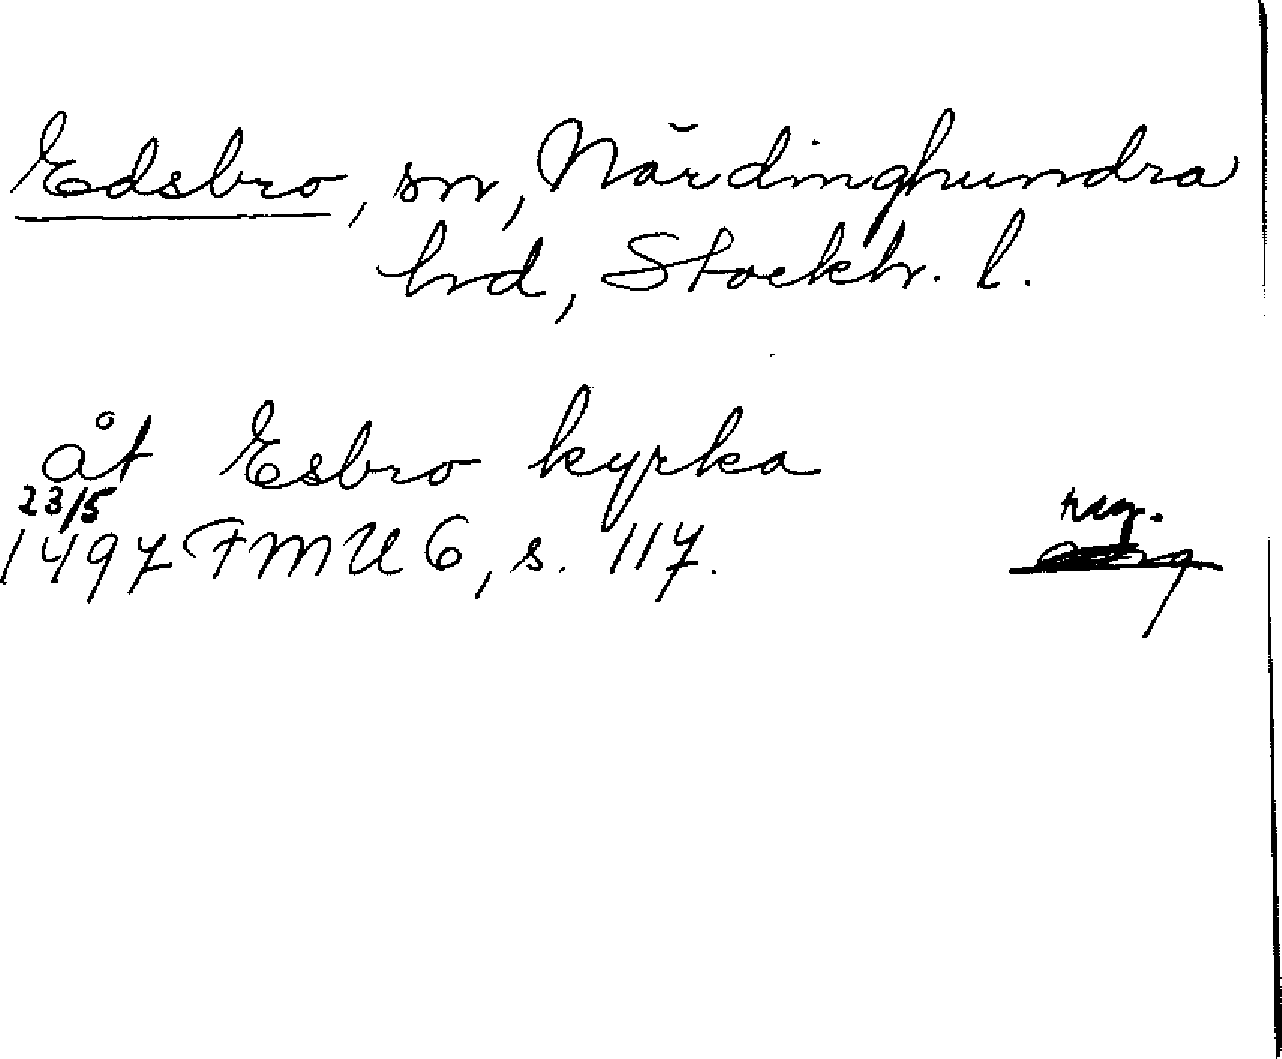 Edsbro, sn, Närdinghundra
hrd, Stockh. l.
åt Esbro kyrka
23/5
1497 FMU 6, s. 117.
reg.